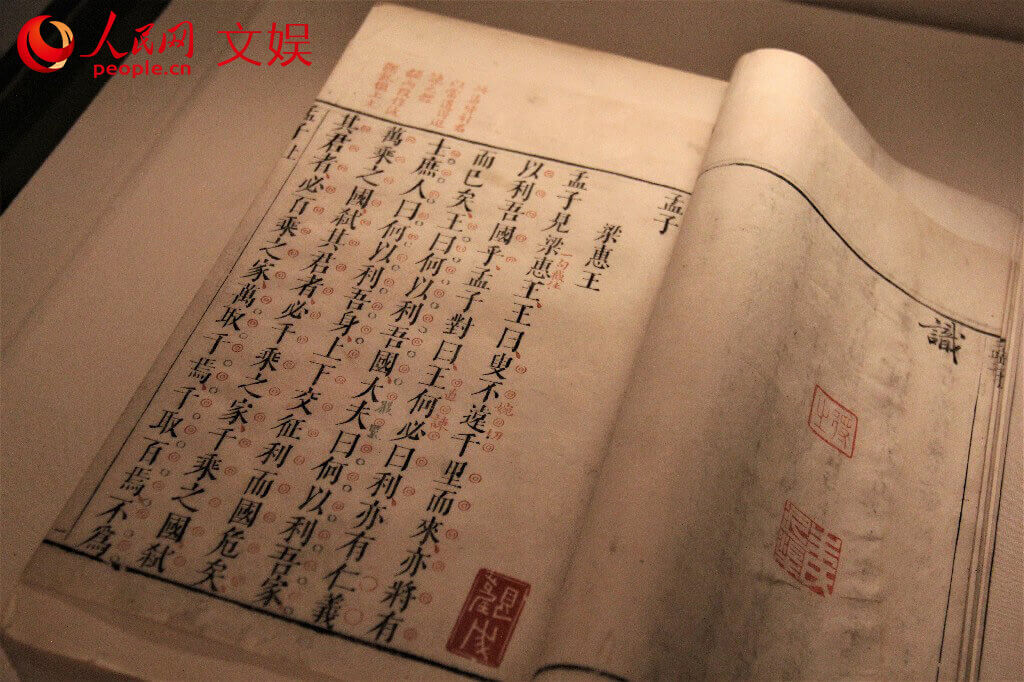 人民网 文娱
people.cn
識
孟子
孟子
梁惠王
孟子見梁惠王王曰叟不遠千里而來亦將有
以利吾國乎孟子對曰王何必曰利亦有仁義
而已矣王曰何以利吾國大夫曰何以利吾家
士庶人曰何以利吾身上下交征利而國危矣
萬乘之國弑其君者必千乘之家千乘之國弑
其君者必百乘之家萬取千焉千取百焉不爲
孟子上
一